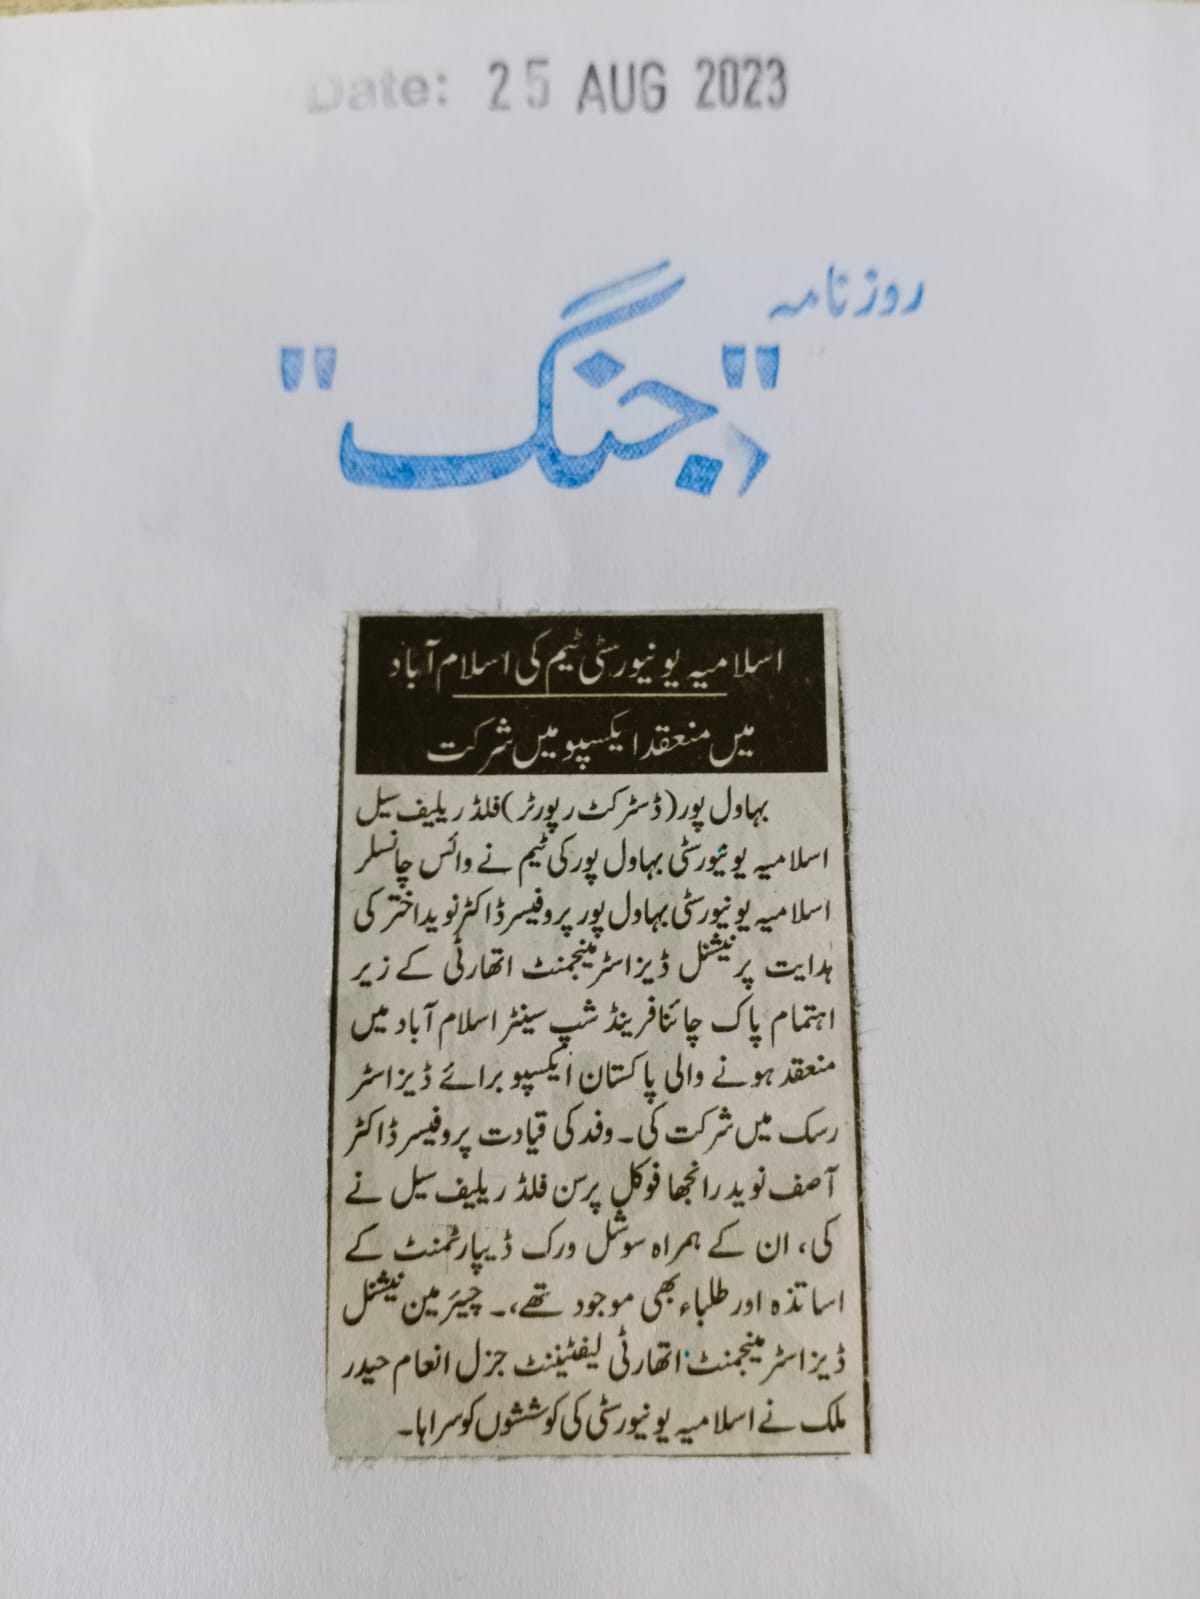 Date: 25 AUG 2023
روزنامہ
"جنگ"
اسلامیہ یونیورسٹی ٹیم کی اسلام آباد
میں منعقد ایکسپو میں شرکت
بہاول پور (ڈسٹرکٹ رپورٹر) فلڈ ریلیف سیل
اسلامیہ یونیورسٹی بہاول پور کی ٹیم نے وائس چانسلر
اسلامیہ یونیورسٹی بہاول پور پروفیسر ڈاکٹر نوید اختر کی
ہدایت پر نیشنل ڈیزاسٹر مینجمنٹ اتھارٹی کے زیر
اہتمام پاک چائنا فرینڈ شپ سینٹر اسلام آباد میں
منعقد ہونے والی پاکستان ایکسپو برائے ڈیزاسٹر
رسک میں شرکت کی۔ وفد کی قیادت پروفیسر ڈاکٹر
آصف نوید رانجھا فوکل پرسن فلڈ ریلیف سیل نے
کی، ان کے ہمراہ سوشل ورک ڈیپارٹمنٹ کے
اساتذہ اور طلباء بھی موجود تھے،۔ چیئرمین نیشنل
ڈیزاسٹر مینجمنٹ اتھارٹی لیفٹیننٹ جنرل انعام حیدر
ملک نے اسلامیہ یونیورسٹی کی کوششوں کو سراہا۔